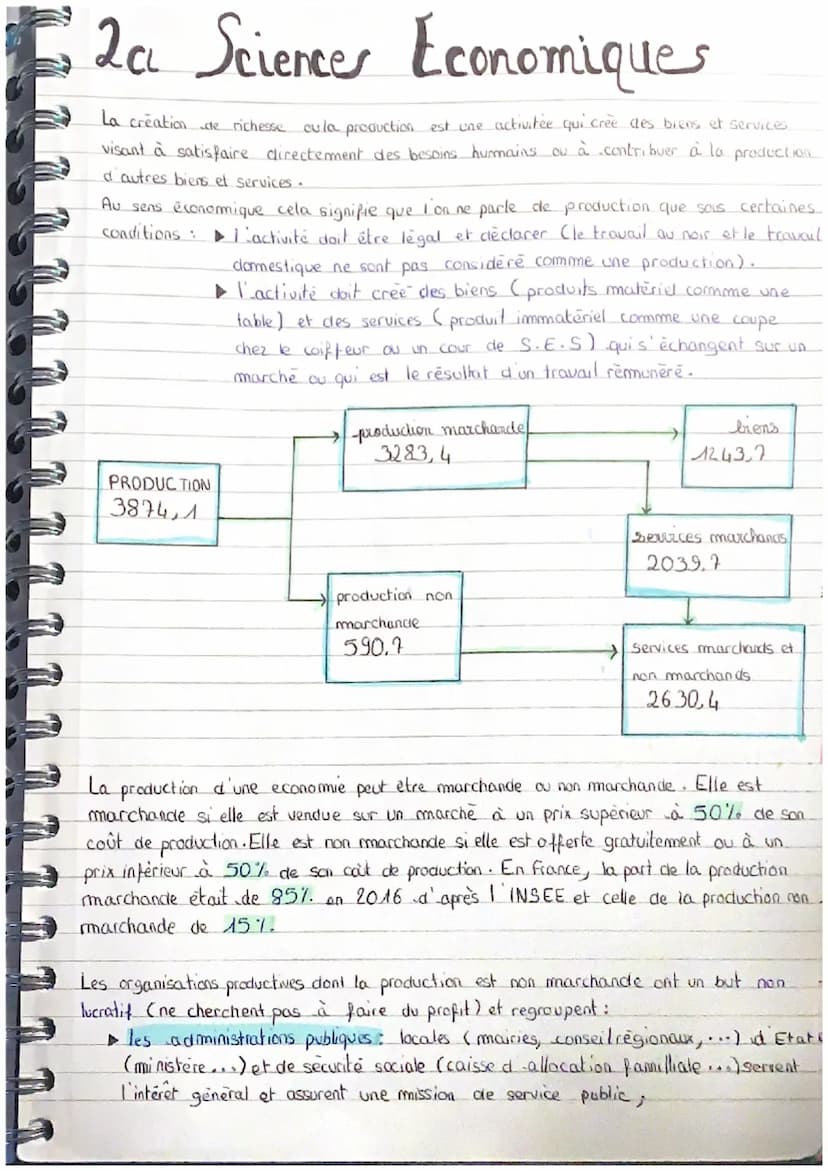 2a Sciences Economiques
La création de richesse ou la production est une activitée qui crée des biens et services
visant à satisfaire directement des besoins humains ou à contribuer à la production
d'autres biens et services.
Au sens économique cela signifie que l'on ne parle de production que sous certaines
conditions : ▶ l'activité doit être légal et déclarer (le travail au noir et le travail
domestique ne sont pas considéré comme une production).
▶ l'activité doit créé des biens (produits matériel comme une
table) et des services (produit immatériel comme une coupe
chez le coiffeur ou un cour de S.E.S) qui s'échangent sur un
marché ou qui est le résultat d'un travail rémunéré.
production marchande
3283,4
biens
1243,7
PRODUCTION
3874,1
services marchands
2039,7
production non
marchande
590,7
services marchands et
non marchands
2630,4
La production d'une economie peut être marchande ou non marchande. Elle est
marchande si elle est vendue sur un marché à un prix supérieur à 50% de son
coût de production. Elle est non marchande si elle est offerte gratuitement ou à un
prix inférieur à 50% de son coût de production. En France, la part de la production
marchande était de 85% en 2016 d'après l'INSEE et celle de la production non
marchande de 15%.
Les organisations productives dont la production est non marchande ont un but non
lucratif (ne cherchent pas à faire du profit) et regroupent :
▶ les administrations publiques : locales (mairies, conseil régionaux, ...) d'Etat
(ministère ...) et de sécurité sociale (caisse d'allocation familliale ...) servent
l'intérêt général et assurent une mission de service public,